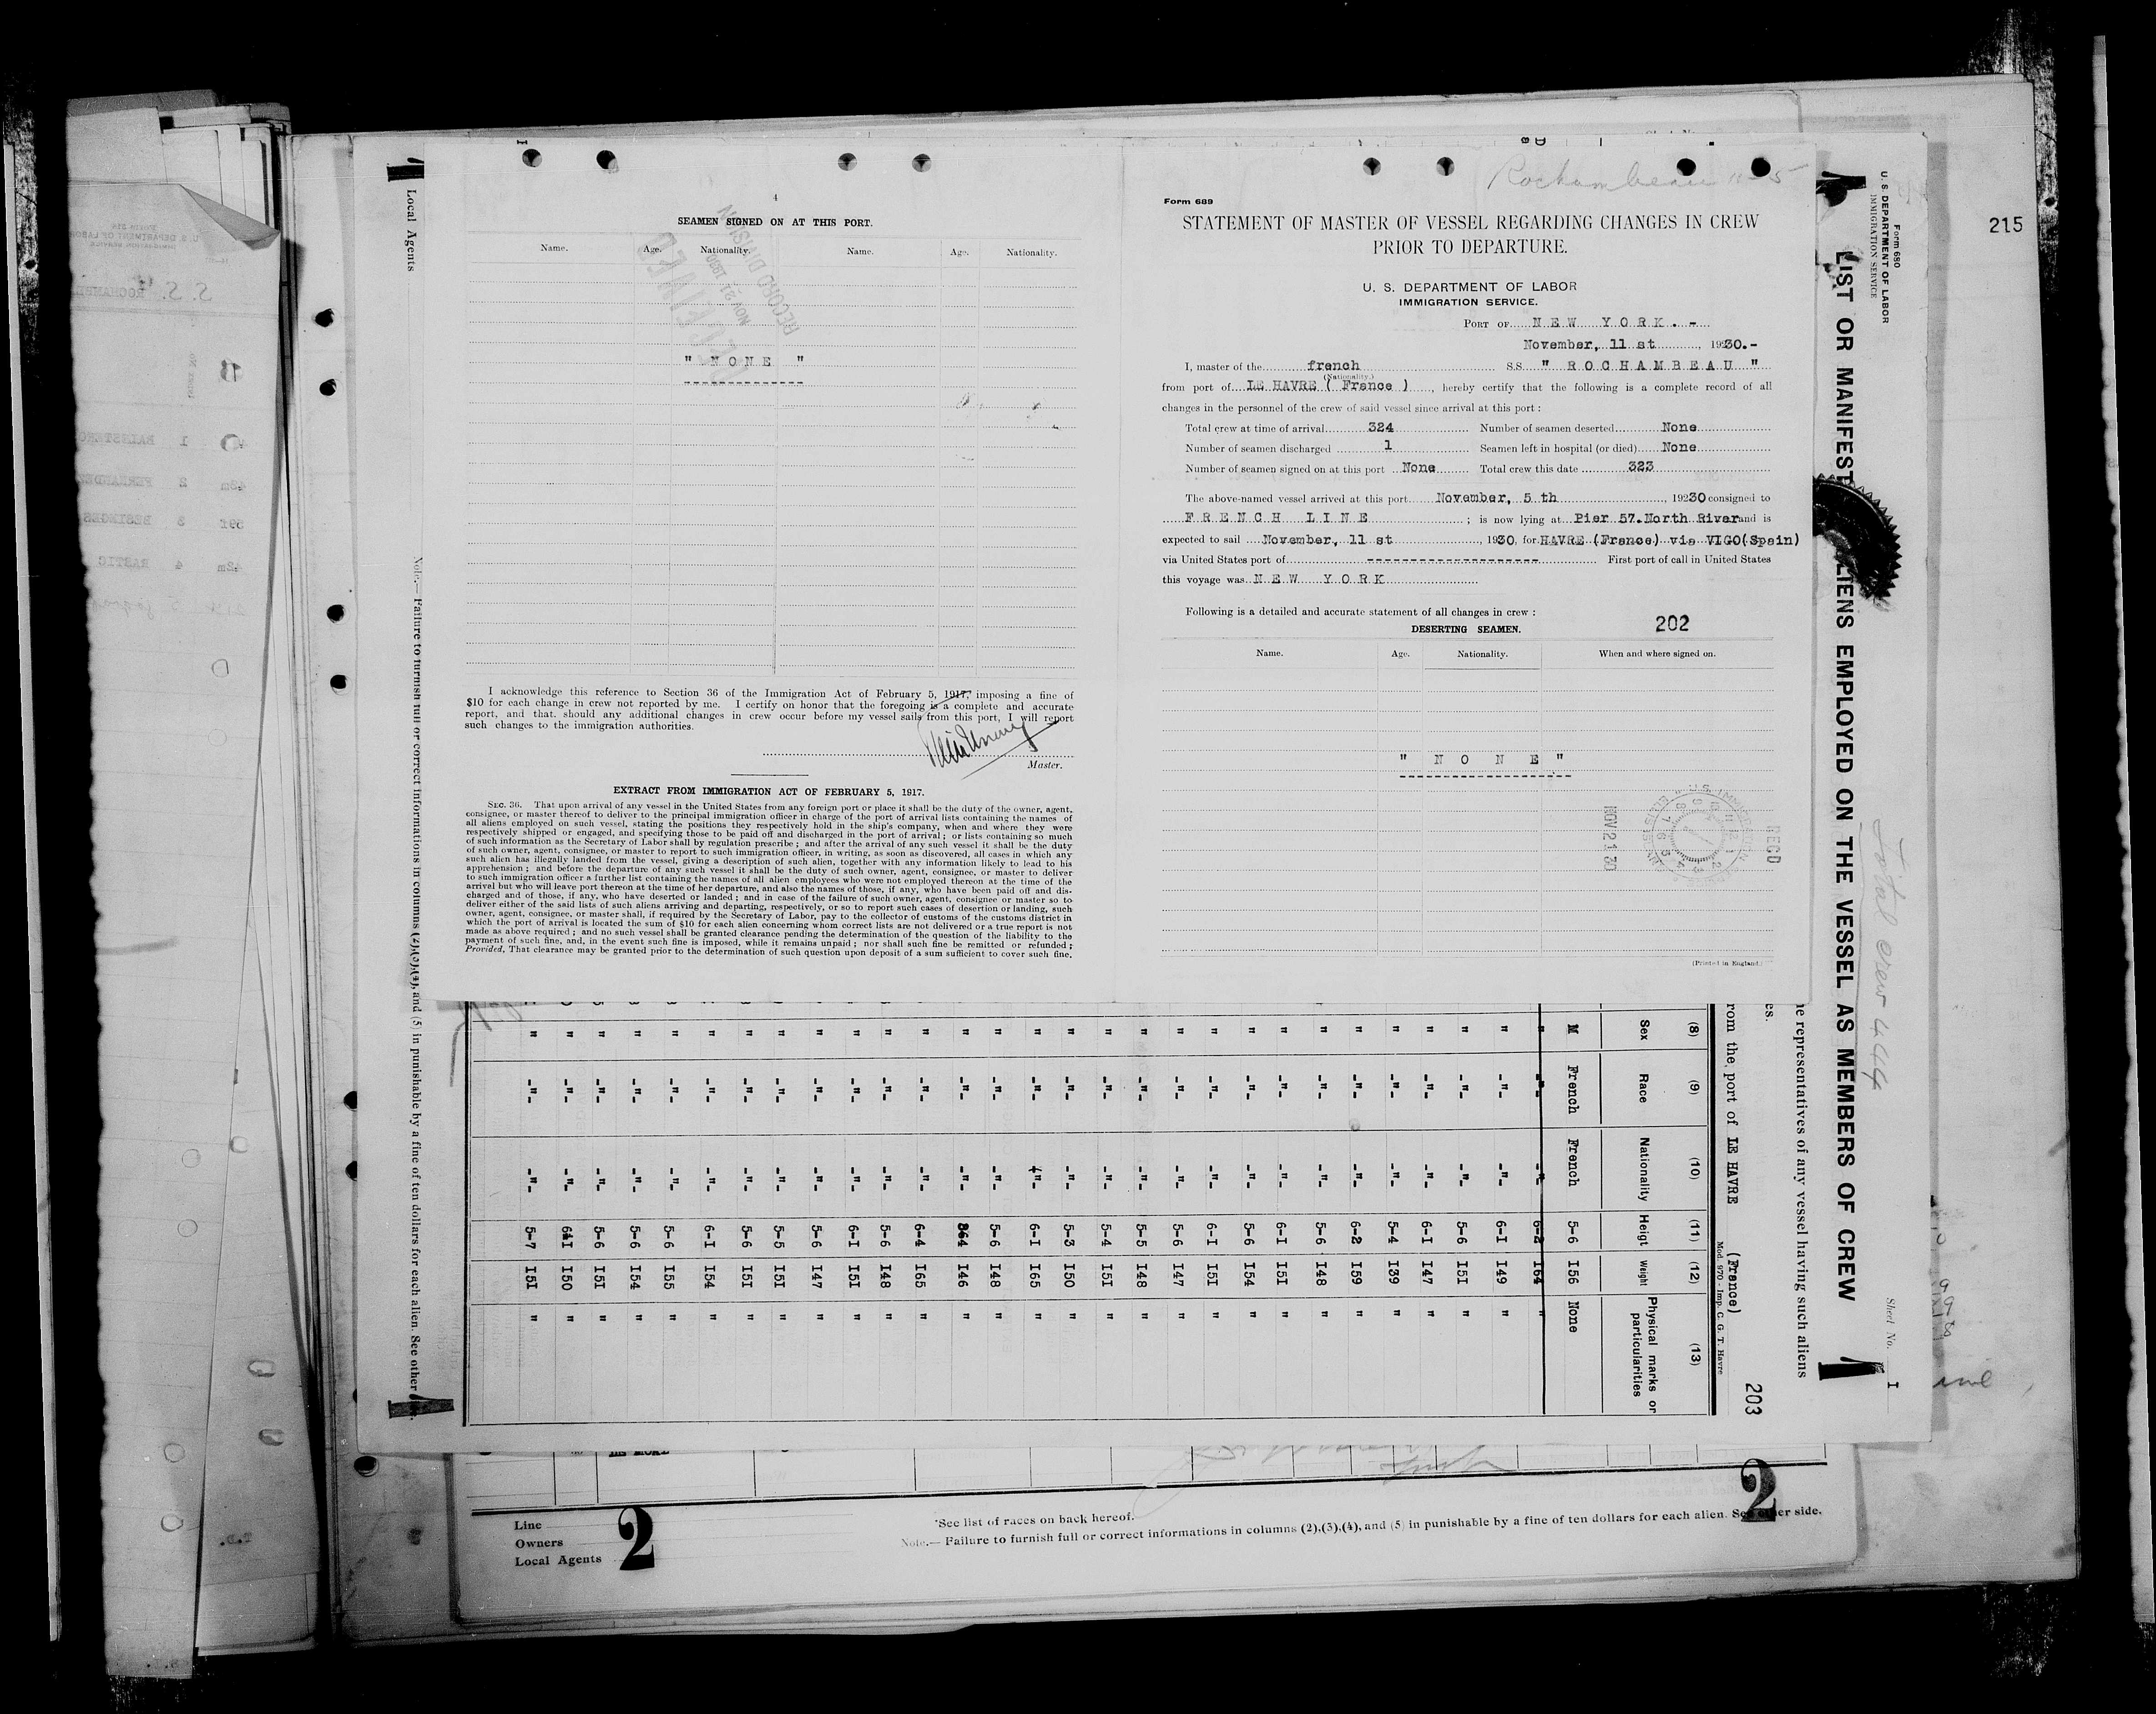 4
SEAMEN SIGNED ON AT THIS PORT.
Name. Age. Nationality. Name. Age. Nationality.
" N O N E "
RECEIVED
NOV 21 1930
RECORD DIVISION
I acknowledge this reference to Section 36 of the Immigration Act of February 5, 1917, imposing a fine of
$10 for each change in crew not reported by me. I certify on honor that the foregoing is a complete and accurate
report, and that. should any additional changes in crew occur before my vessel sails from this port, I will report
such changes to the immigration authorities.
Master.
EXTRACT FROM IMMIGRATION ACT OF FEBRUARY 5, 1917.
SEC. 36. That upon arrival of any vessel in the United States from any foreign port or place it shall be the duty of the owner, agent,
consignee, or master thereof to deliver to the principal immigration officer in charge of the port of arrival lists containing the names of
all aliens employed on such vessel, stating the positions they respectively hold in the ship's company, when and where they were
respectively shipped or engaged, and specifying those to be paid off and discharged in the port of arrival ; or lists containing so much
of such information as the Secretary of Labor shall by regulation prescribe ; and after the arrival of any such vessel it shall be the duty
of such owner, agent, consignee, or master to report to such immigration officer, in writing, as soon as discovered, all cases in which any
such alien has illegally landed from the vessel, giving a description of such alien, together with any information likely to lead to his
apprehension ; and before the departure of any such vessel it shall be the duty of such owner, agent, consignee, or master to deliver
to such immigration officer a further list containing the names of all alien employees who were not employed thereon at the time of the
arrival but who will leave port thereon at the time of her departure, and also the names of those, if any, who have been paid off and dis-
charged and of those, if any, who have deserted or landed ; and in case of the failure of such owner, agent, consignee or master so to
deliver either of the said lists of such aliens arriving and departing, respectively, or so to report such cases of desertion or landing, such
owner, agent, consignee, or master shall, if required by the Secretary of Labor, pay to the collector of customs of the customs district in
which the port of arrival is located the sum of $10 for each alien concerning whom correct lists are not delivered or a true report is not
made as above required ; and no such vessel shall be granted clearance pending the determination of the question of the liability to the
payment of such fine, and, in the event such fine is imposed, while it remains unpaid ; nor shall such fine be remitted or refunded ;
Provided, That clearance may be granted prior to the determination of such question upon deposit of a sum sufficient to cover such fine.
Rochambeau 11-5
Form 689
STATEMENT OF MASTER OF VESSEL REGARDING CHANGES IN CREW
PRIOR TO DEPARTURE.
U. S. DEPARTMENT OF LABOR
IMMIGRATION SERVICE.
PORT OF N E W Y O R K . -
November, 11 st , 1930.-
I, master of the french S.S. " R O C H A M B E A U "
(Nationality.)
from port of LE HAVRE ( France ) , hereby certify that the following is a complete record of all
changes in the personnel of the crew of said vessel since arrival at this port :
Total crew at time of arrival 324 Number of seamen deserted None
Number of seamen discharged 1 Seamen left in hospital (or died) None
Number of seamen signed on at this port None Total crew this date 323
The above-named vessel arrived at this port November, 5 th , 19230 consigned to
F R E N C H L I N E ; is now lying at Pier 57.North River and is
expected to sail November, 11 st , 1930, for HAVRE (France) via VIGO(Spain)
via United States port of -------------------- First port of call in United States
this voyage was N E W Y O R K
Following is a detailed and accurate statement of all changes in crew :
DESERTING SEAMEN. 202
Name. Age. Nationality. When and where signed on.
" N O N E "
NOV 21 30
RECD
(Printed in England.)
215
Form 680
U. S DEPARTMENT OF LABOR
IMMIGRATION SERVICE
LIST OR MANIFEST ALIENS EMPLOYED ON THE VESSEL AS MEMBERS OF CREW
Sheet No. I
Total crew 444
he representatives of any vessel having such aliens
es.
203
rom the port of LE HAVRE (France)
Mod 970 - Imp. C. G. T. Havre
(8) (9) (10) (11) (12) (13)
Sex Race Nationality Heigt Weight Physical marks or particularities
M French French 5-6 I56 None
" -"- -"- 6-2 I64 "
" -"- -"- 6-I I49 "
" -"- -"- 5-6 I5I "
" -"- -"- 6-I I47 "
" -"- -"- 5-4 I39 "
" -"- -"- 6-2 I59 "
" -"- -"- 5-6 I48 "
" -"- -"- 6-I I5I "
" -"- -"- 5-6 I54 "
" -"- -"- 6-I I5I "
" -"- -"- 5-6 I47 "
" -"- -"- 5-5 I48 "
" -"- -"- 5-4 I5I "
" -"- -"- 5-3 I50 "
" -"- -"- 6-I I65 "
" -"- -"- 5-6 I48 "
" -"- -"- I46 "
" -"- -"- 6-4 I65 "
" -"- -"- 5-6 I48 "
" -"- -"- 6-I I5I "
" -"- -"- 5-6 I47 "
" -"- -"- 5-5 I5I "
" -"- -"- 5-6 I5I "
" -"- -"- 6-I I54 "
" -"- -"- 5-6 I55 "
" -"- -"- 5-6 I54 "
" -"- -"- 5-6 I5I "
" -"- -"- I50 "
" -"- -"- 5-7 I5I "
Local Agents
Note.— Failure to furnish full or correct informations in columns (2),(3),(4), and (5) in punishable by a fine of ten dollars for each alien. See other
Line
Owners
Local Agents
2
*See list of races on back hereof.
Note.— Failure to furnish full or correct informations in columns (2),(3),(4), and (5) in punishable by a fine of ten dollars for each alien. See other side.
2